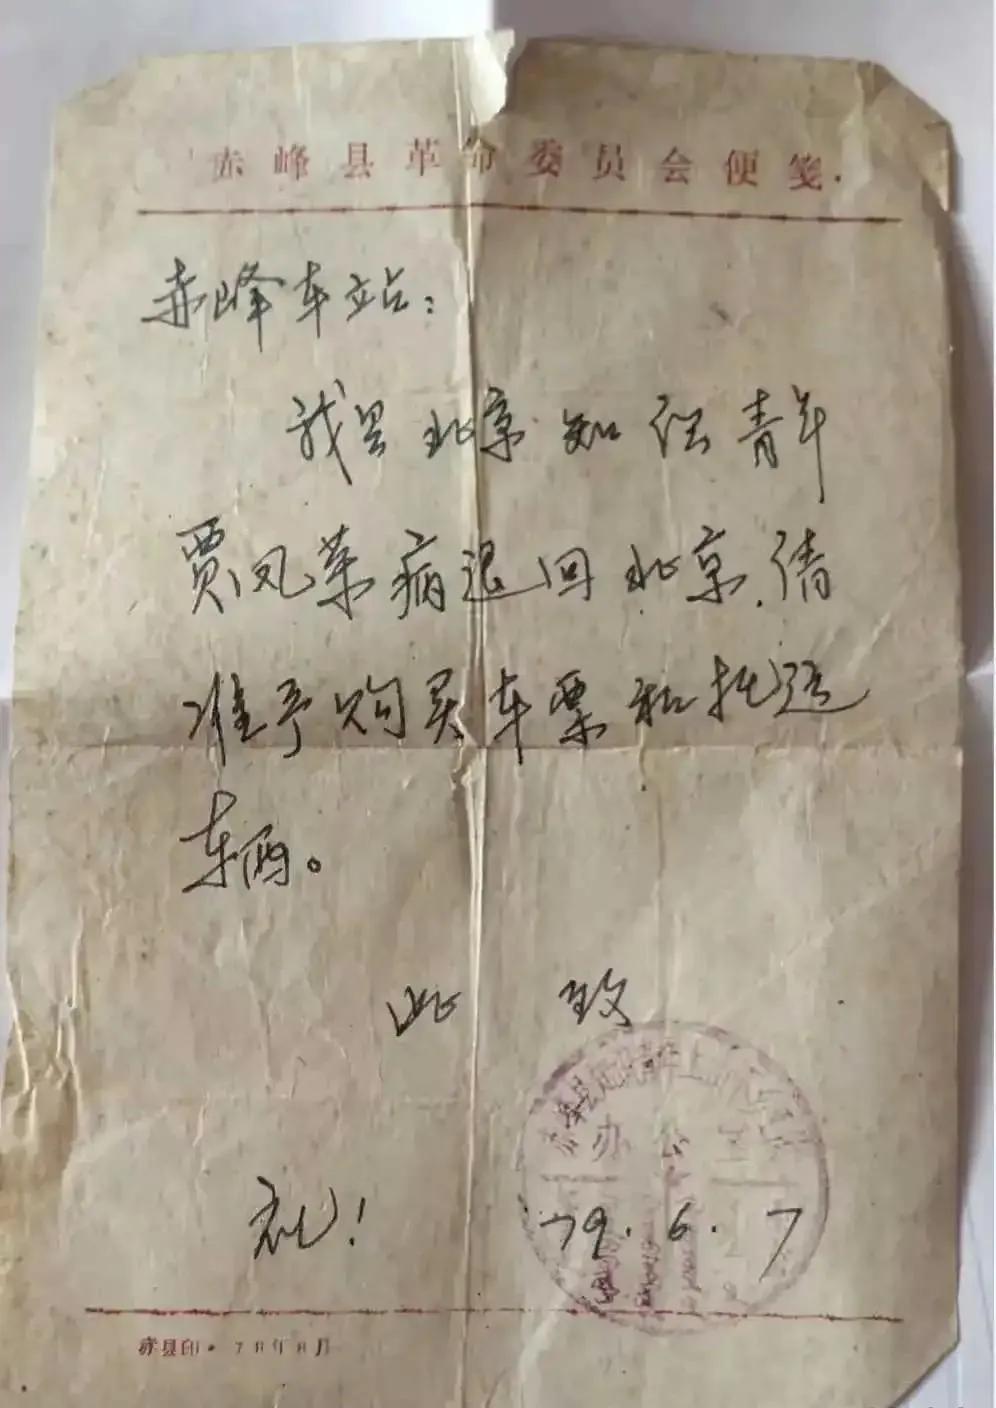 赤峰县革命委员会便笺
赤峰车站：
我县北京知识青年
贾凤荣病退回北京，请
准予购买车票和托运
车辆。
此致
赤峰县知识青年上山下乡
办公室
礼！
79.6.7
赤县印·78年8月